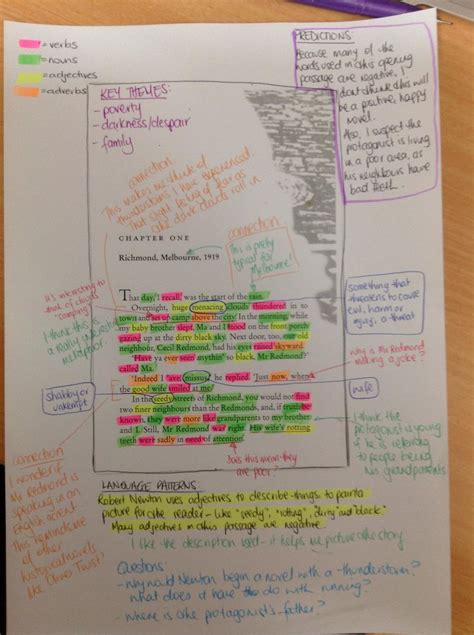 = verbs
= nouns
= adjectives
= adverbs
KEY THEMES:
- poverty
- darkness/despair
- family
PREDICTIONS:
Because many of the
words used in this opening
passage are negative, I
don't think this will
be a positive, happy
novel.
Also, I suspect the
protagonist is living
in a poor area, as
his neighbours have
bad teeth.
connection:
This makes me think of
thunderstorms I have experienced
that slight feeling of fear as
the dark clouds roll in
CHAPTER ONE
Richmond, Melbourne, 1919
connection
This is pretty
typical for
Melbourne!
That day, I recall, was the start of the rain.
Overnight, huge menacing clouds thundered in so
town and set up camp above the city. In the morning, while
my baby brother slept, Ma and I stood on the front porch
gazing up at the dirty black sky. Next door, too, our
neighbour, Cecil Redmond, had his eyes raised skyward.
'Have ya ever seen anythin' so black, Mr Redmond?'
called Ma.
'Indeed I have, missus,' he replied. 'Just now, when
the good wife smiled at me.'
In the seedy streets of Richmond, you would not find
two finer neighbours than the Redmonds, and, if truth be
known, they were more like grandparents to my brother
and I. Still, Mr Redmond was right. His wife's rotting
teeth were sadly in need of attention.
It's interesting
that the clouds
"camping"
I think this is
a really interesting
metaphor
shabby or
unkempt
connection
I wonder if
Mr Redmond is
speaking in an
English accent
This reminds me
of other
historical novels
like Oliver Twist?
something that
threatens to cause
evil, harm or
injury, a threat
why is Mr Redmond
making a joke?
wife
I think the
protagonist is young
if he is referring
to people being
his grandparents
Does this mean they
are poor?
LANGUAGE PATTERNS:
Robert Newton uses adjectives to describe things to paint a
picture for the reader - like "seedy", "rotting", "dirty" and "black."
Many adjectives in this passage are negative.
I like the description used - it helps me picture the story
Questions:
- why would Newton begin a novel with a thunderstorm?
what does it have to do with running?
- where is the protagonist's father?